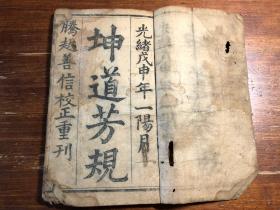 光緒戊申年一陽月
坤道芳規
騰越善信校正重刊